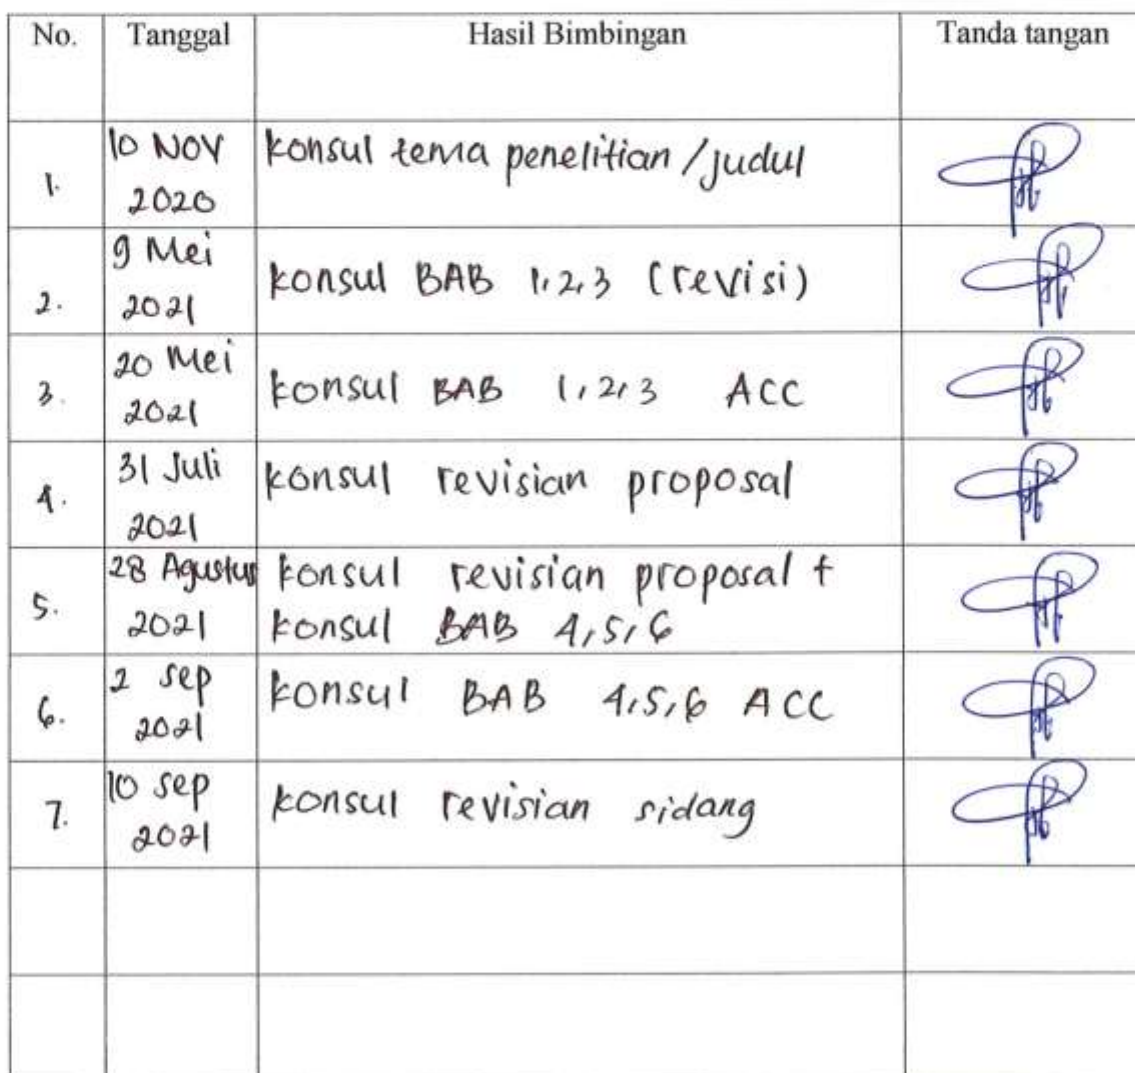 No. Tanggal Hasil Bimbingan Tanda tangan
1. 10 NOV 2020 konsul tema penelitian / judul
2. 9 Mei 2021 konsul BAB 1,2,3 (revisi)
3. 20 Mei 2021 konsul BAB 1,2,3 ACC
4. 31 Juli 2021 konsul revisian proposal
5. 28 Agustus 2021 konsul revisian proposal +
konsul BAB 4,5,6
6. 2 sep 2021 konsul BAB 4,5,6 ACC
7. 10 sep 2021 konsul revisian sidang